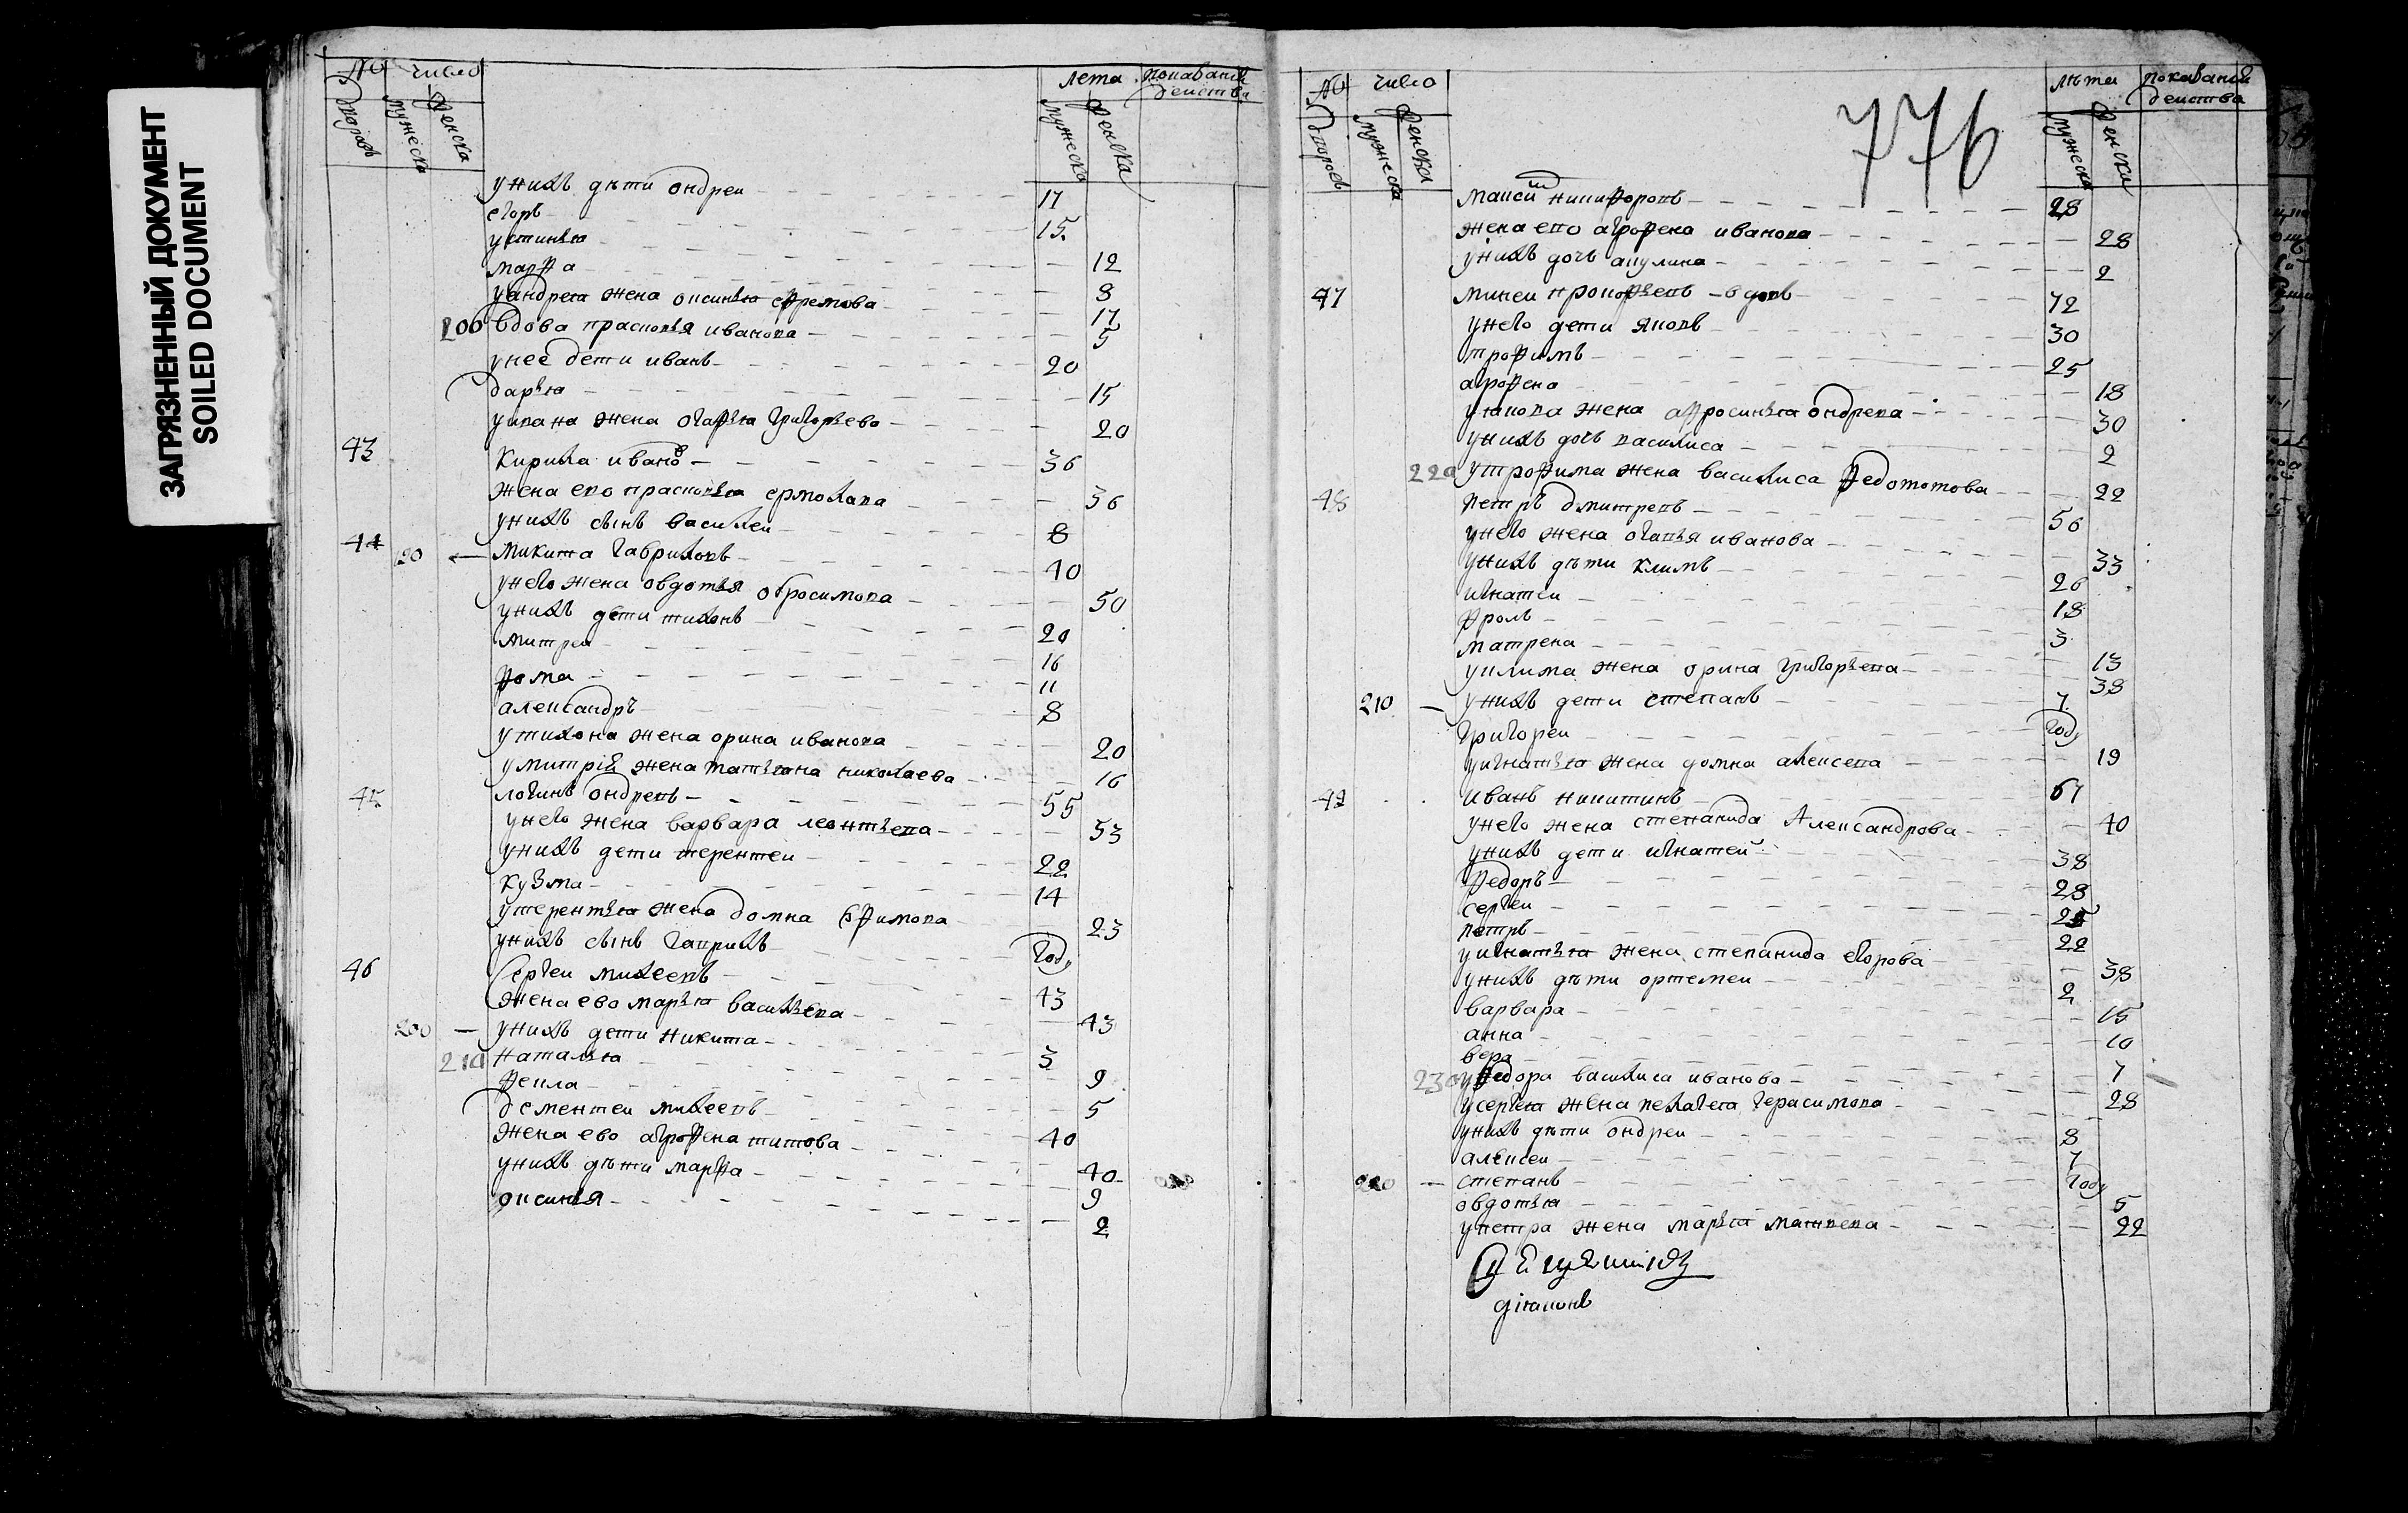 ЗАГРЯЗНЕННЫЙ ДОКУМЕНТ
SOILED DOCUMENT
№ число лета показание
дворовъ мужеска женска мужеска женска действа
у нихъ дѣти ондреи 17
егоръ 15
устинья 12
марфа 8
у андрея жена оксинья ефремова 17
200 вдова прасковья иванова 5
у нее дети иванъ 20
дарья 15
у ивана жена огафья григорьева 20
43 Кирила ивановъ 36
жена ево прасковья ермолава 36
у нихъ сынъ василеи 8
44 190 Микита гавриловъ 40
у него жена овдотья обросимова 50
у нихъ дети тихонъ 20
митреи 16
фома 11
александръ 8
у тихона жена орина иванова 20
у митрія жена татьяна николаева 16
45 логинъ ондревъ 55
у него жена варвара леонтьева 53
у нихъ дети терентеи 22
кузма 14
у терентья жена домна ефимова 23
у нихъ сынъ гаврилъ году
46 Сергеи михеевъ 43
жена ево марья васильева 43
200 у нихъ дети никита 3
210 наталья 9
фекла 5
дементеи михеевъ 40
жена ево агрофена титова 40
у нихъ дѣти марфа 9
оксинья 2
776
№ число лѣта показание
дворовъ мужеска женска мужеска женска действа
никифоровъ 28
жена ево агрофена иванова 28
у нихъ дочь акулина 2
47 михеи прокофьевъ вдовъ 72
у него дети яковъ 30
трофимъ 25
агрофена 18
у якова жена афросинья ондрева 30
у нихъ дочь василиса 2
220 у трофима жена василиса федототова 22
48 петръ дмитревъ 56
у него жена огапья иванова 33
у нихъ дѣти климъ 26
игнатеи 18
фролъ 3
матрена 13
у клима жена орина григорьева 38
210 у нихъ дети степанъ 7
григореи году
у игнатья жена домна алексева 19
49 иванъ никитинъ 67
у него жена степанида Александрова 40
у нихъ дети игнатеи 38
федоръ 28
сергеи 25
петръ 22
у игнатья жена степанида егорова 38
у нихъ дѣти ортемеи 2
варвара 15
анна 10
вера 7
230 у федора василиса иванова 28
у сергея жена пелагея герасимова
у нихъ дѣти ондреи 8
алексеи 7
220 степанъ году
овдотья 5
у петра жена марья матвева 22
діаконъ